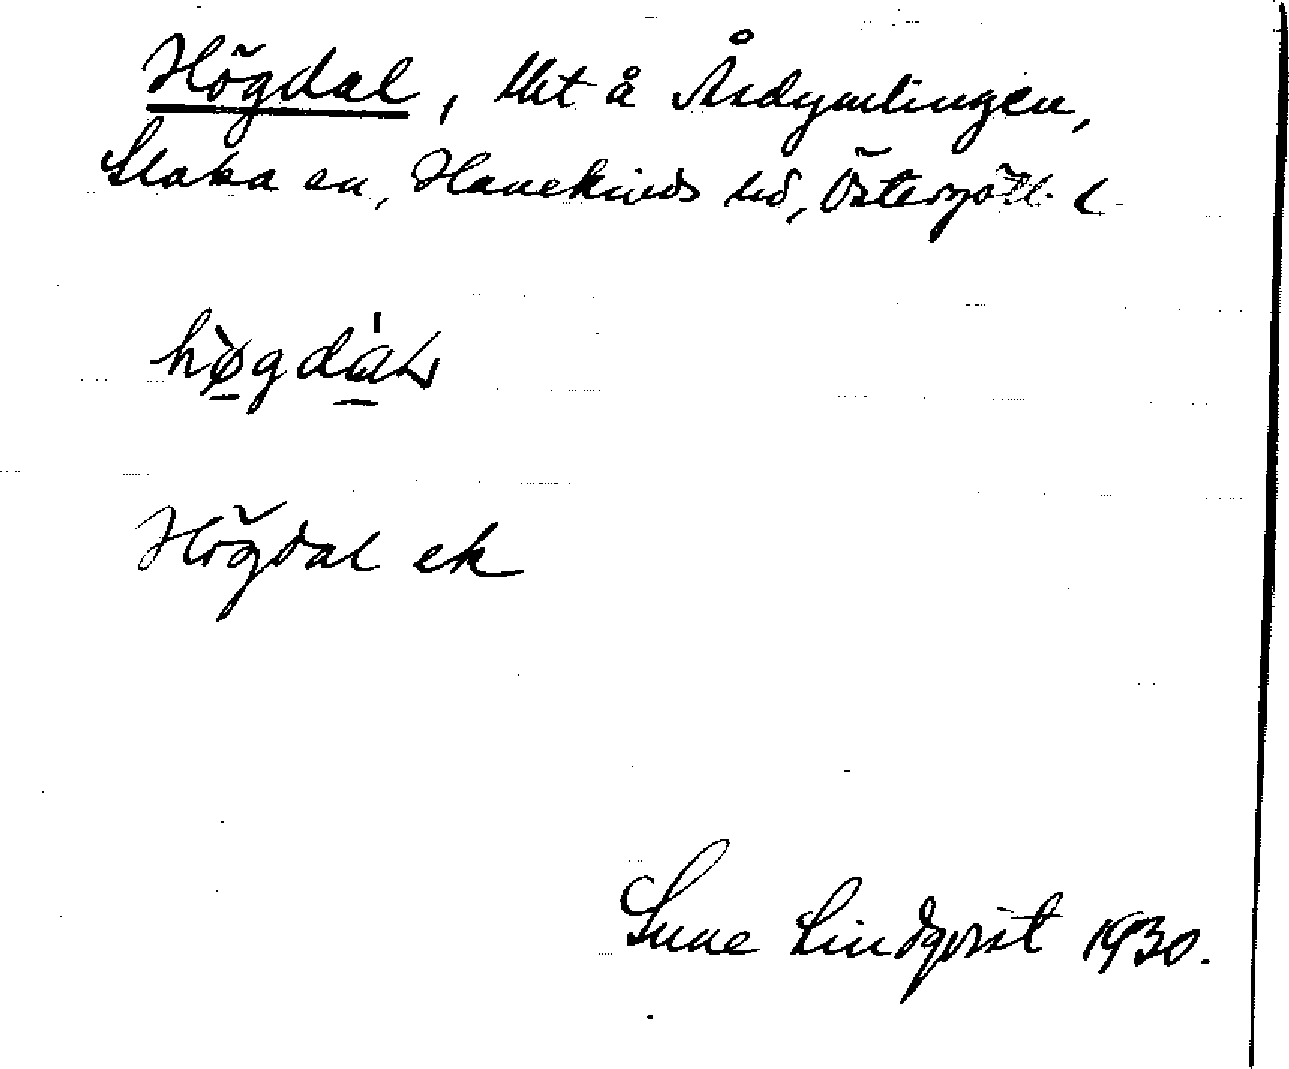 Högdal, lht å Ärdymlingen,
Slaka sn, Hanekinds hd, Östergötl. l
høgdáḷ
Högdal ek
Sune Lindqvist 1930.